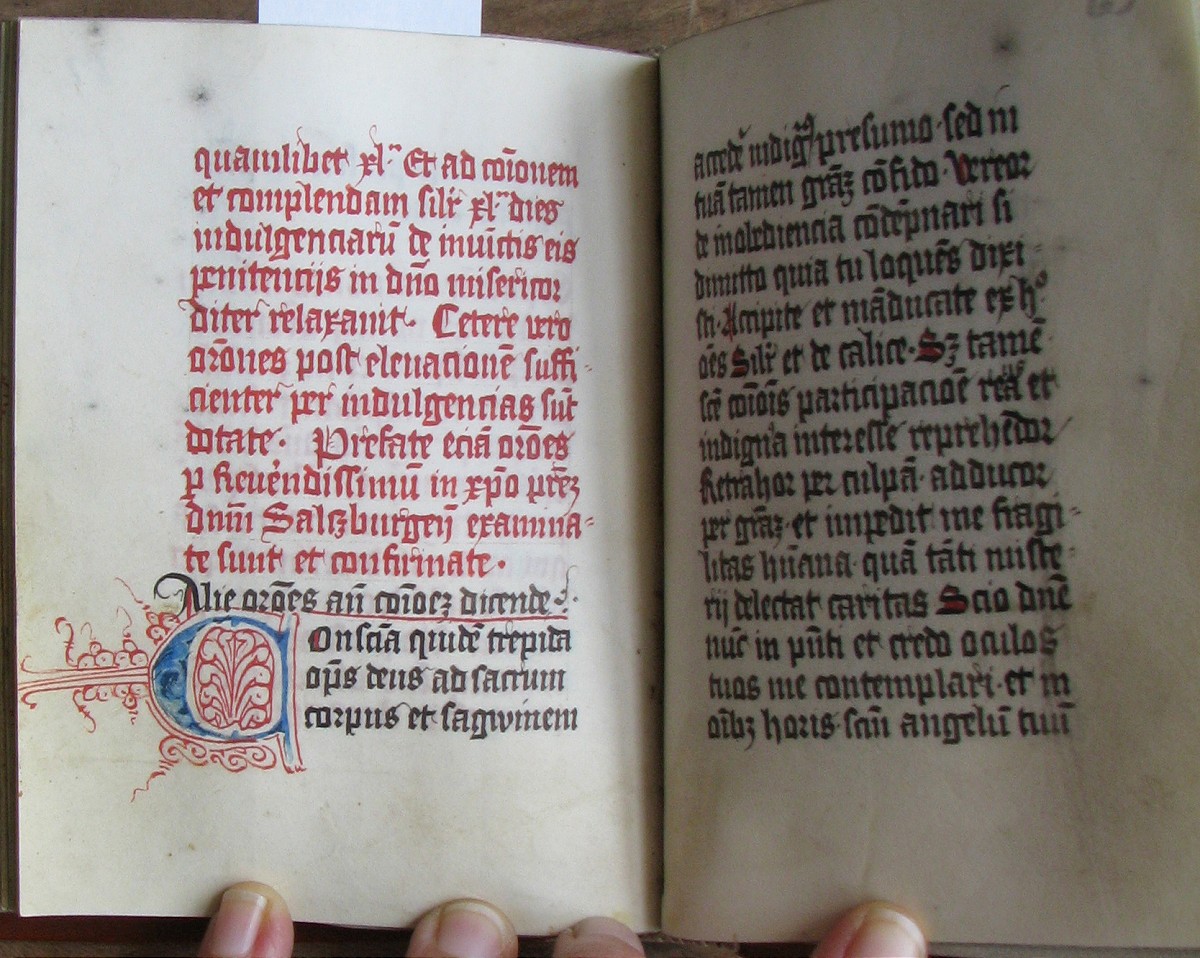 quamlibet xl^m Et ad cōionem
et complendam silr̄ xl^m dies
indulgenciarū de iniūctis eis
penitencijs in dn̄o misericor
diter relaxauit· Cetere vero
orōnes post eleuacionē suffi-
cienter per indulgencias sūt
dotate· Prefate eciā orōes
p Reuēndissimū in xp̄o prēȝ
dnm̄ Salczburgeñ examina-
te sunt et confirmate·
Alie orōes an̄ cōioeȝ dicende·
Conscīa quidē trepida
op̄s deus ad sacrum
corpus et sagwinem
accedē indig⁹ presumo·sed in
tuā tamen grāȝ cōfido· Vereor
de inobediencia cōdēpnari si
dimitto quia tu loquēs dixi-
sti·Accipite et māducate ex h°
oēs Silr̄ et de calice·Sȝ tamē
participacioē et
indigna interesse reprehēdor
Retrahor per culpā· adducor
per grāȝ·et impedit me fragi-
litas hūana quā tāti miste-
rij delectat caritas Scio dnē
nūc in pn̄ti et credo oculos
tuos me contemplari·et in
oībȝ horis·scm̄ angelū tuū